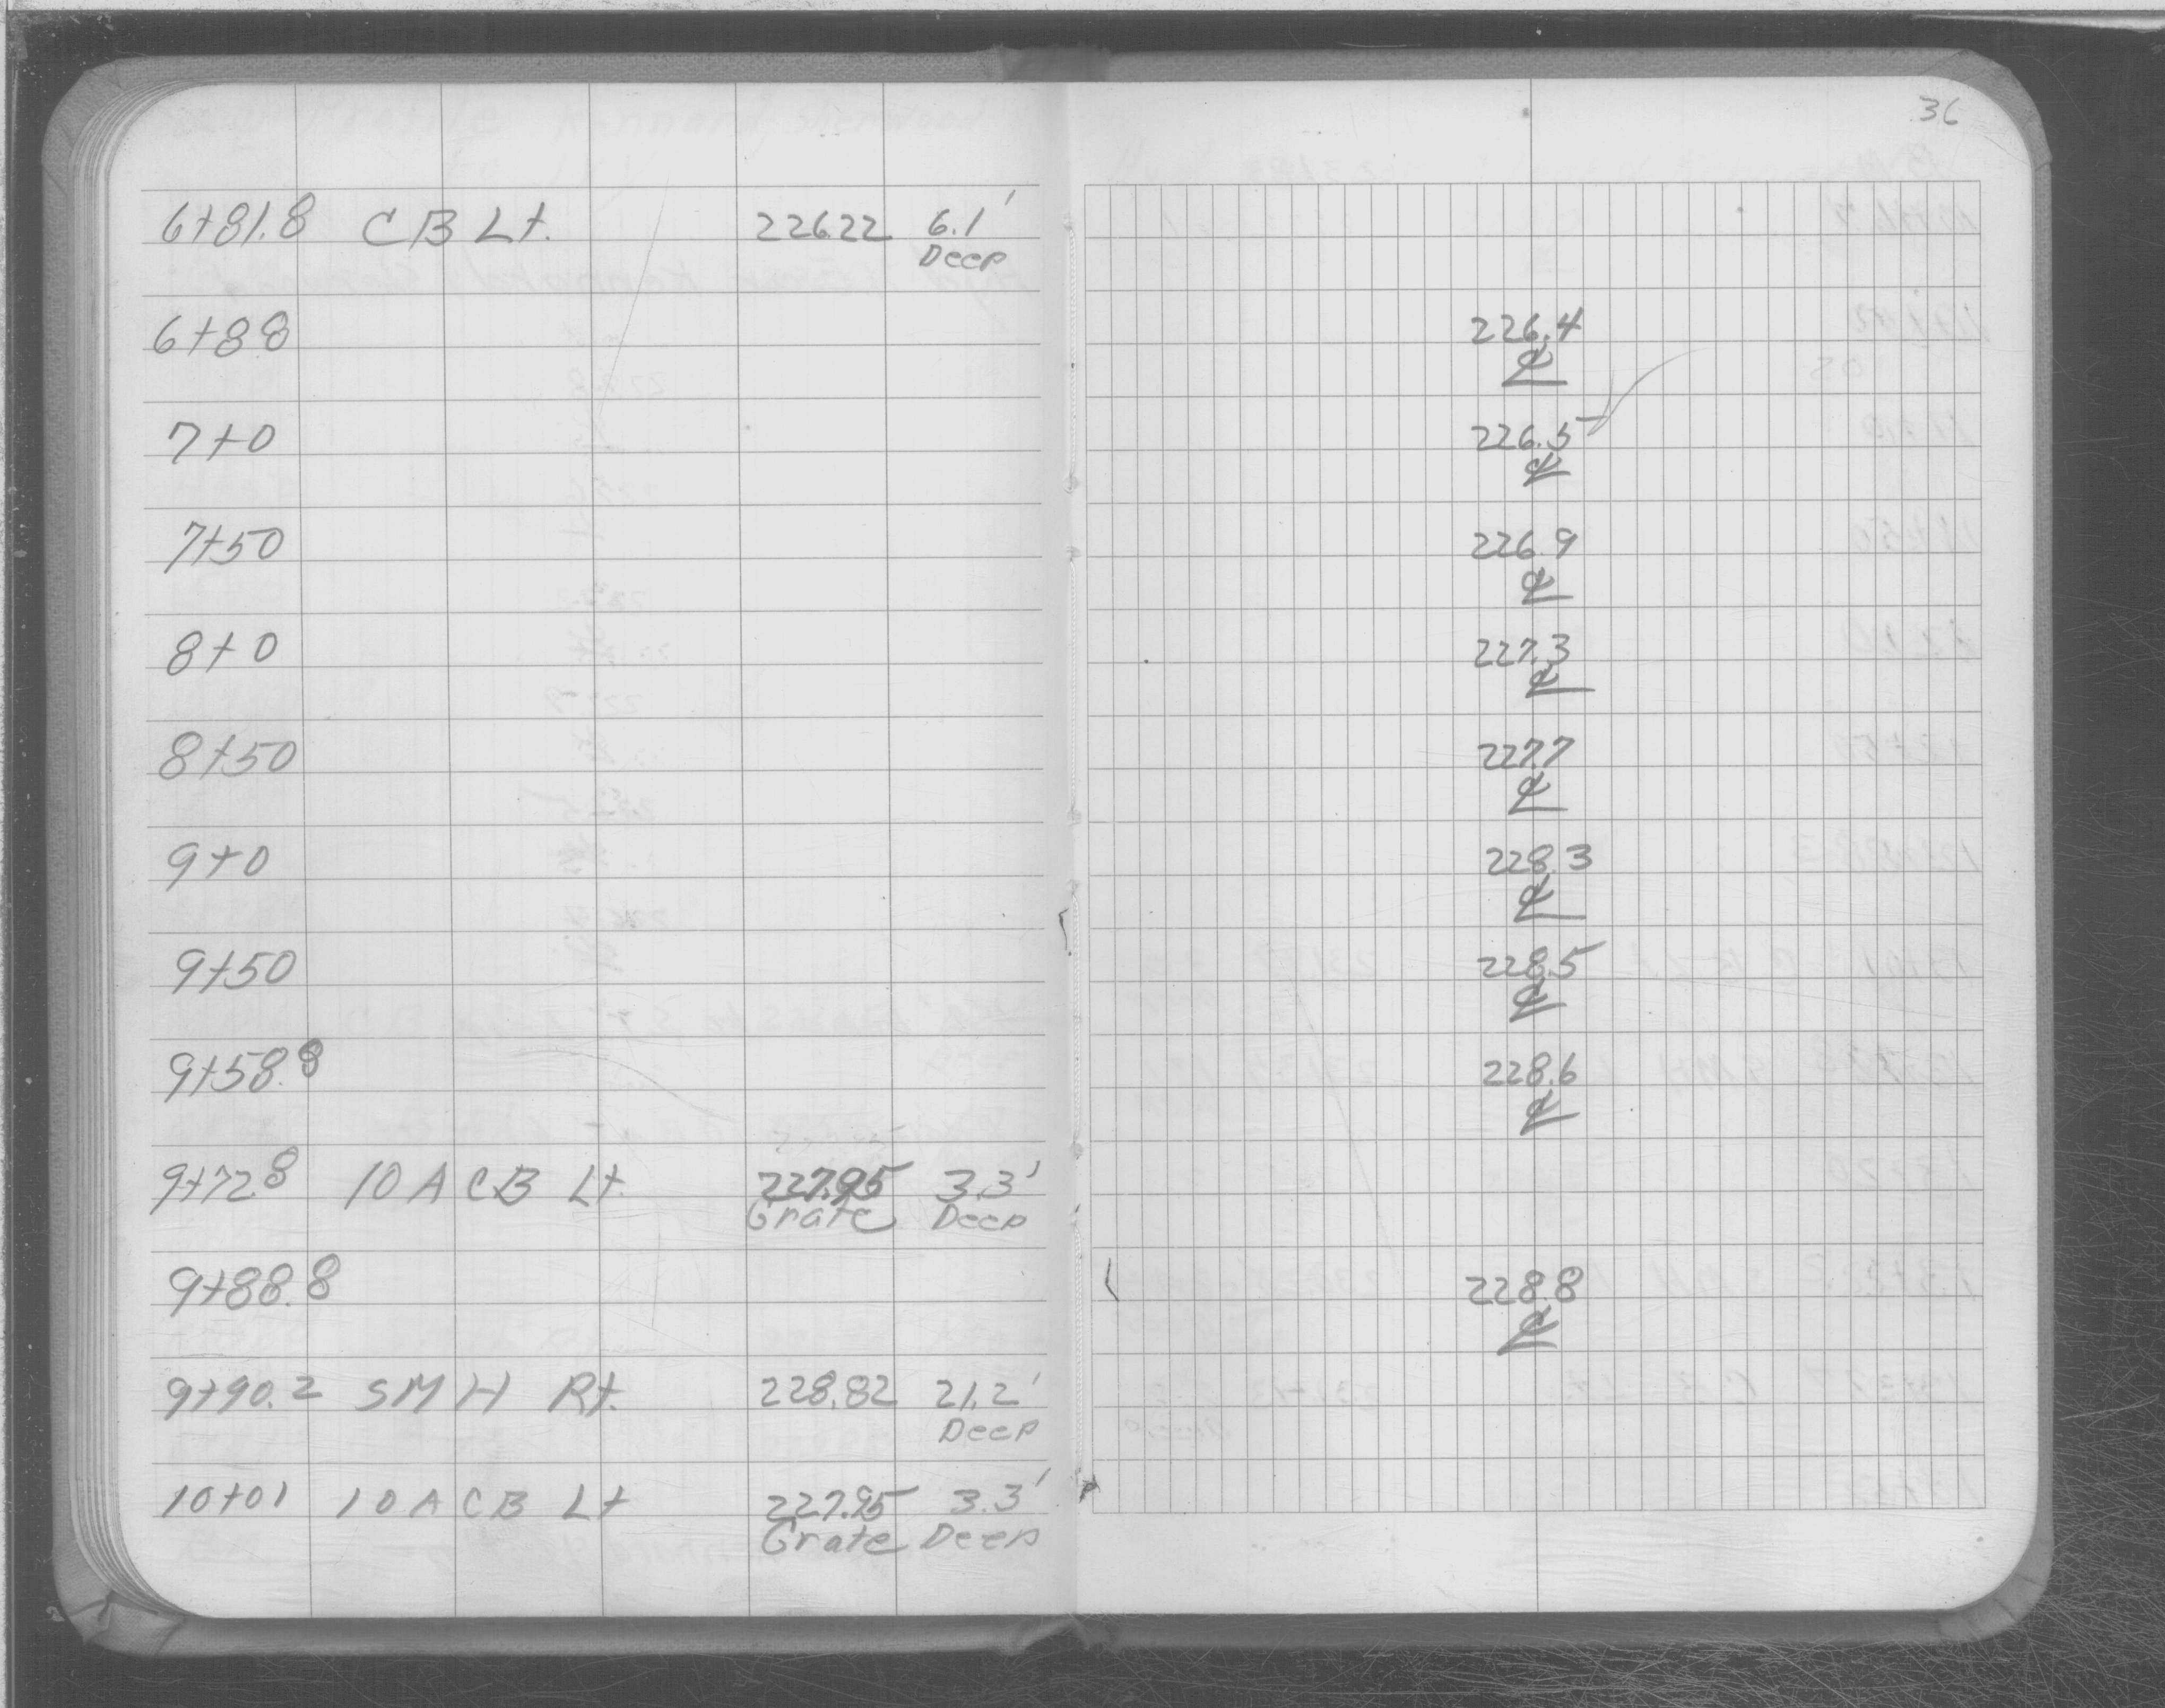 36
6+81.8 CB Lt. 226.22 6.1'
Deep
6+88 226.4
℄
7+0 226.5
℄
7+50 226.9
℄
8+0 227.3
℄
8+50 227.7
℄
9+0 228.3
℄
9+50 228.5
℄
9+58.8 228.6
℄
9+72.8 10 A CB Lt. 227.95 3.3'
Grate Deep
9+88.8 228.8
℄
9+90.2 SMH Rt. 228.82 21.2'
Deep
10+01 10 A CB Lt 227.95 3.3'
Grate Deep